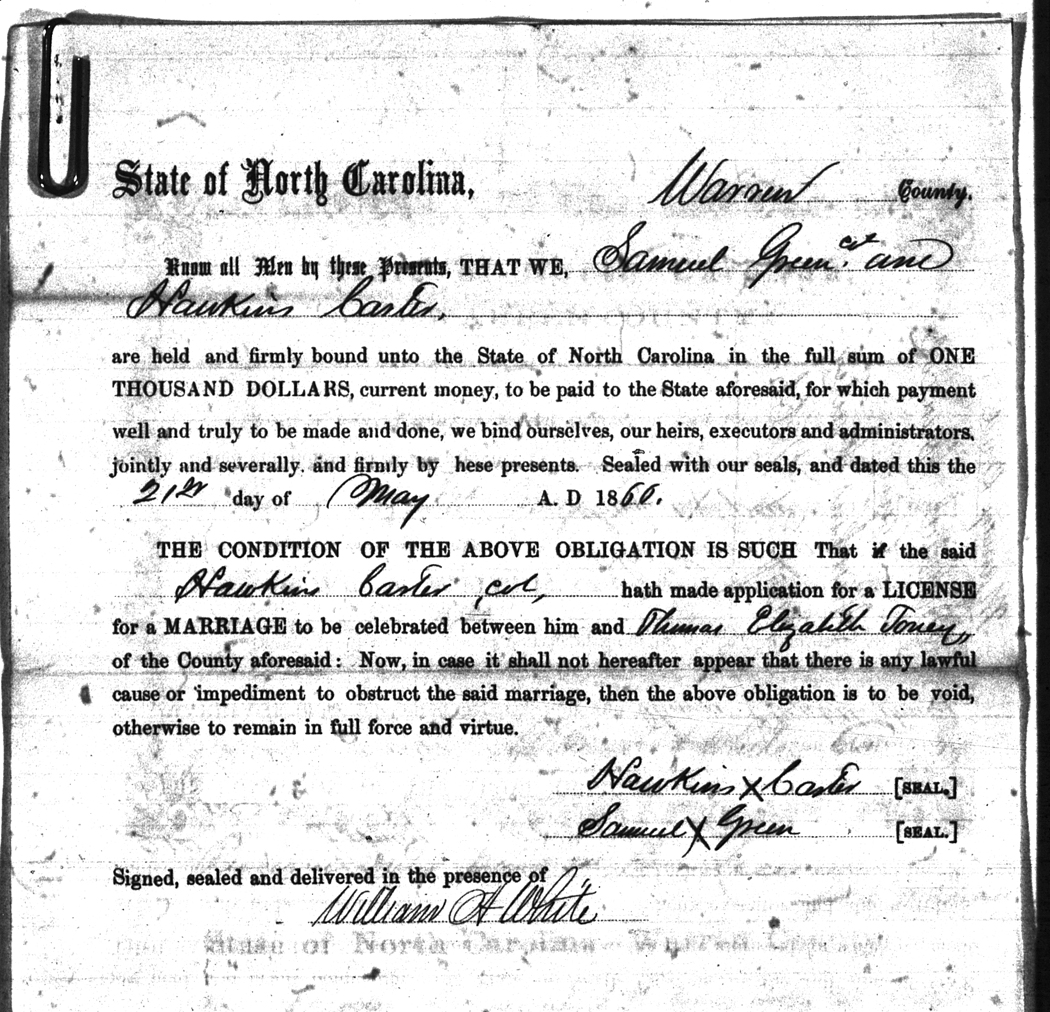 State of North Carolina, Warren County.
Know all Men by these Presents, THAT WE, Samuel Green col. and
Hawkins Carter,
are held and firmly bound unto the State of North Carolina in the full sum of ONE
THOUSAND DOLLARS, current money, to be paid to the State aforesaid, for which payment
well and truly to be made and done, we bind ourselves, our heirs, executors and administrators,
jointly and severally. and firmly by hese presents. Sealed with our seals, and dated this the
21st day of May A. D 1866.
THE CONDITION OF THE ABOVE OBLIGATION IS SUCH That if the said
Hawkins Carter col, hath made application for a LICENSE
for a MARRIAGE to be celebrated between him and Thomas Elizabeth Toney,
of the County aforesaid: Now, in case it shall not hereafter appear that there is any lawful
cause or impediment to obstruct the said marriage, then the above obligation is to be void,
otherwise to remain in full force and virtue.
Hawkins X Carter [SEAL.]
Samuel X Green [SEAL.]
Signed, sealed and delivered in the presence of
William A White
State of North Carolina Warren